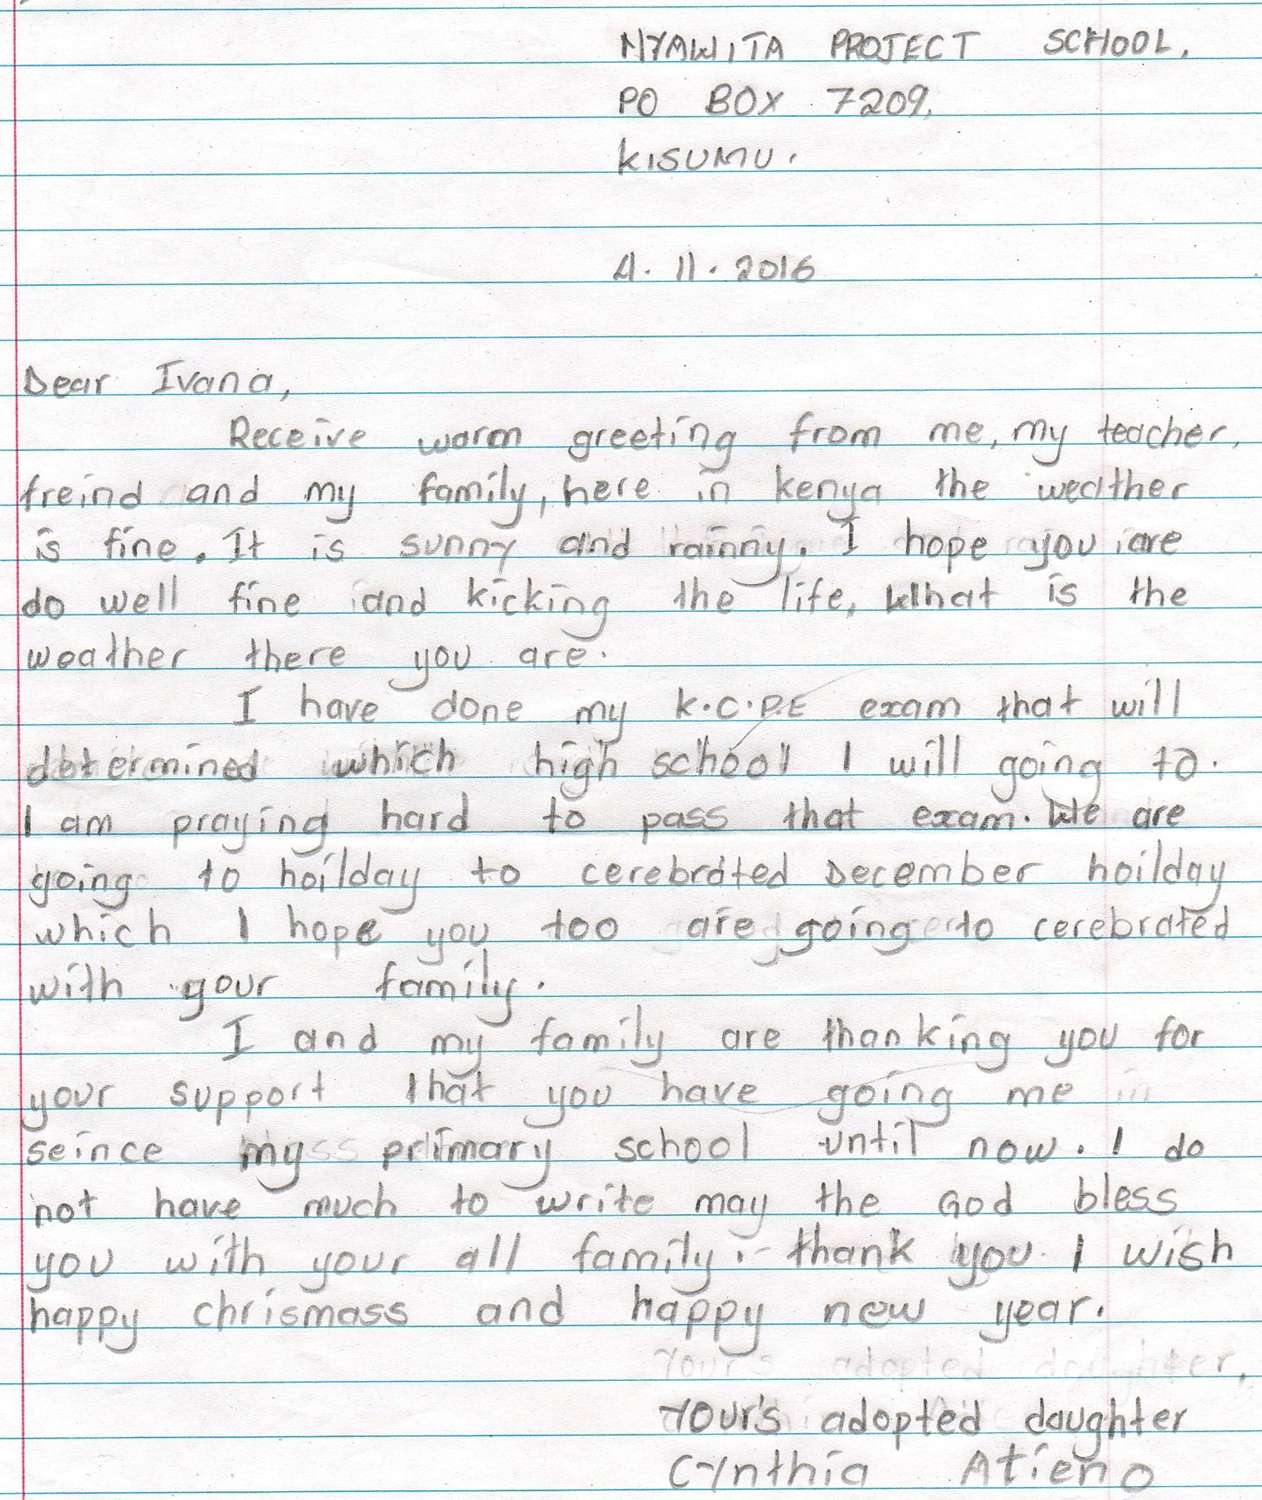 NYAWITA PROJECT SCHOOL,
PO BOX 7209,
KISUMU.
4.11.2016
Dear Ivana,
Receive warm greeting from me, my teacher,
freind and my family, here in kenya the weather
is fine. It is sunny and rainny. I hope you are
do well fine and kicking the life, What is the
weather there you are.
I have done my K.C.P.E exam that will
determined which high school I will going to.
I am praying hard to pass that exam. We are
going to hoilday to cerebrated December hoilday
which I hope you too are going to cerebrated
with your family.
I and my family are thanking you for
your support that you have going me
seince my primary school until now. I do
not have much to write may the God bless
you with your all family. thank you I wish
happy chrismass and happy new year.
Your's adopted daughter,
Your's adopted daughter
Cynthia Atieno